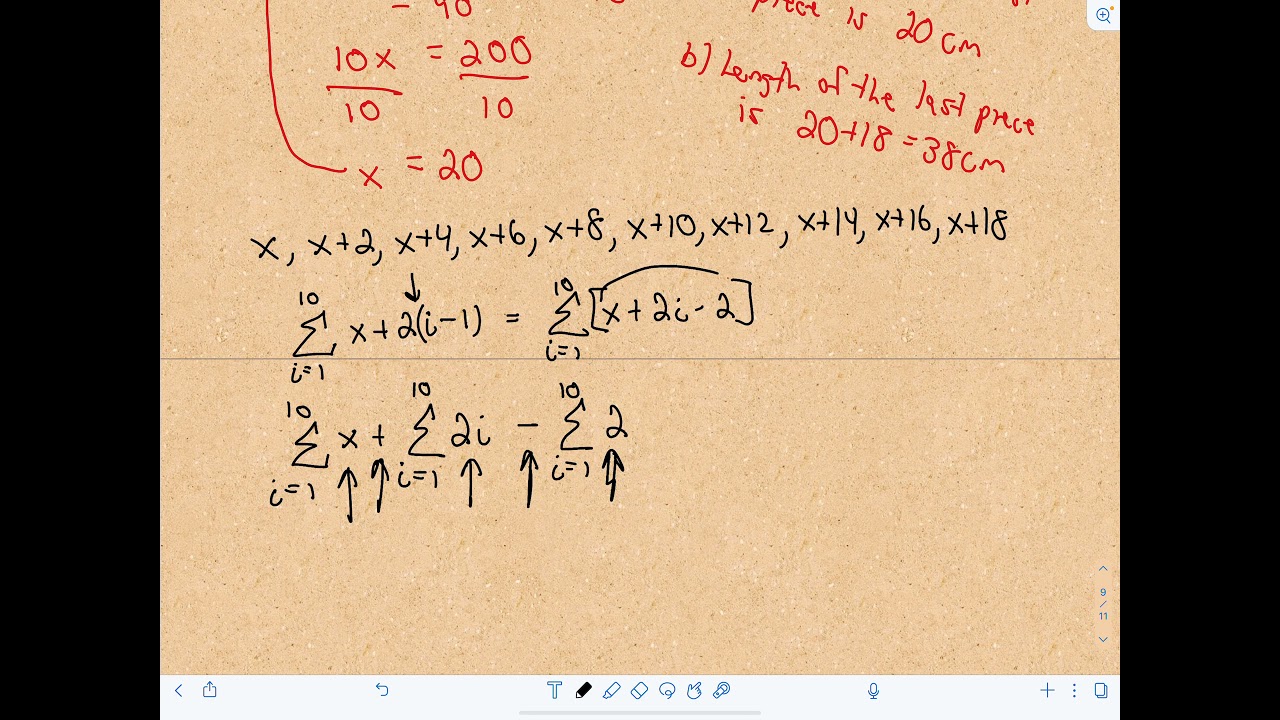 - 40
10x = 200
10 10
x = 20
piece is 20 cm
b) Length of the last piece
is 20+18 = 38cm
x, x+2, x+4, x+6, x+8, x+10, x+12, x+14, x+16, x+18
10 ∑ i=1 x+2(i-1) = 10 ∑ i=1 [x+2i-2]
10 ∑ i=1 x + 10 ∑ i=1 2i - 10 ∑ i=1 2
9
/
11
T